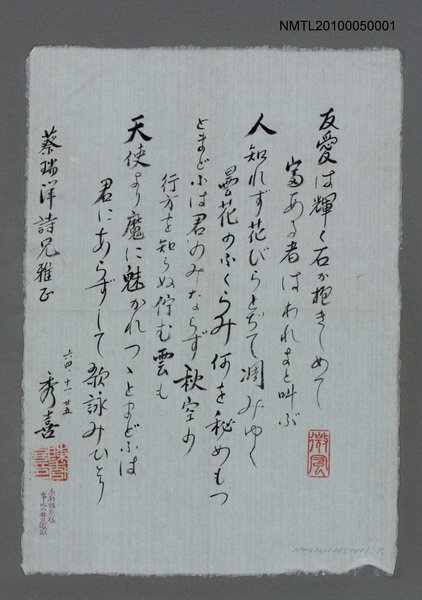 NMTL20100050001
友愛は輝く石か抱きしめて
富ある者はわれまと叫ぶ
人知れず花びらとぢて凋みゆく
曇花のふくらみ何を秘めもつ
とまどふは君のみならず秋空の
行方を知らぬ佇む雲も
天使より魔に魅かれつゝとまどふは
君にあらずして歌詠みひとり
蔡瑞洋詩兄雅正
六四、十一、廿五
秀喜
微風
NMTL20100050001